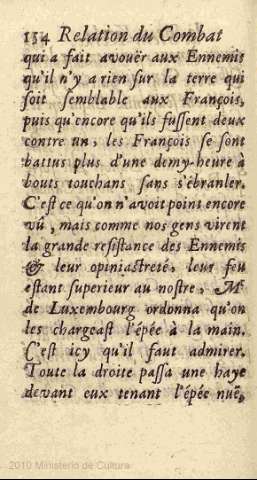 134 Relation du Combat
qui a fait avouër aux Ennemis
qu'il n'y a rien ſur la terre qui
ſoit ſemblable aux François,
puis qu'encore qu'ils fuſſent deux
contre un, les François ſe ſont
battus plus d'une demy-heure à
bouts touchans ſans s'ébranler.
C'eſt ce qu'on n'avoit point encore
vû, mais comme nos gens virent
la grande reſiſtance des Ennemis
& leur opiniaſtreté, leur feu
eſtant ſuperieur au noſtre, Mr
de Luxembourg ordonna qu'on
les chargeaſt l'épée à la main.
C'eſt icy qu'il faut admirer.
Toute la droite paſſa une haye
devant eux tenant l'épée nuë,
2010 Ministerio de Cultura